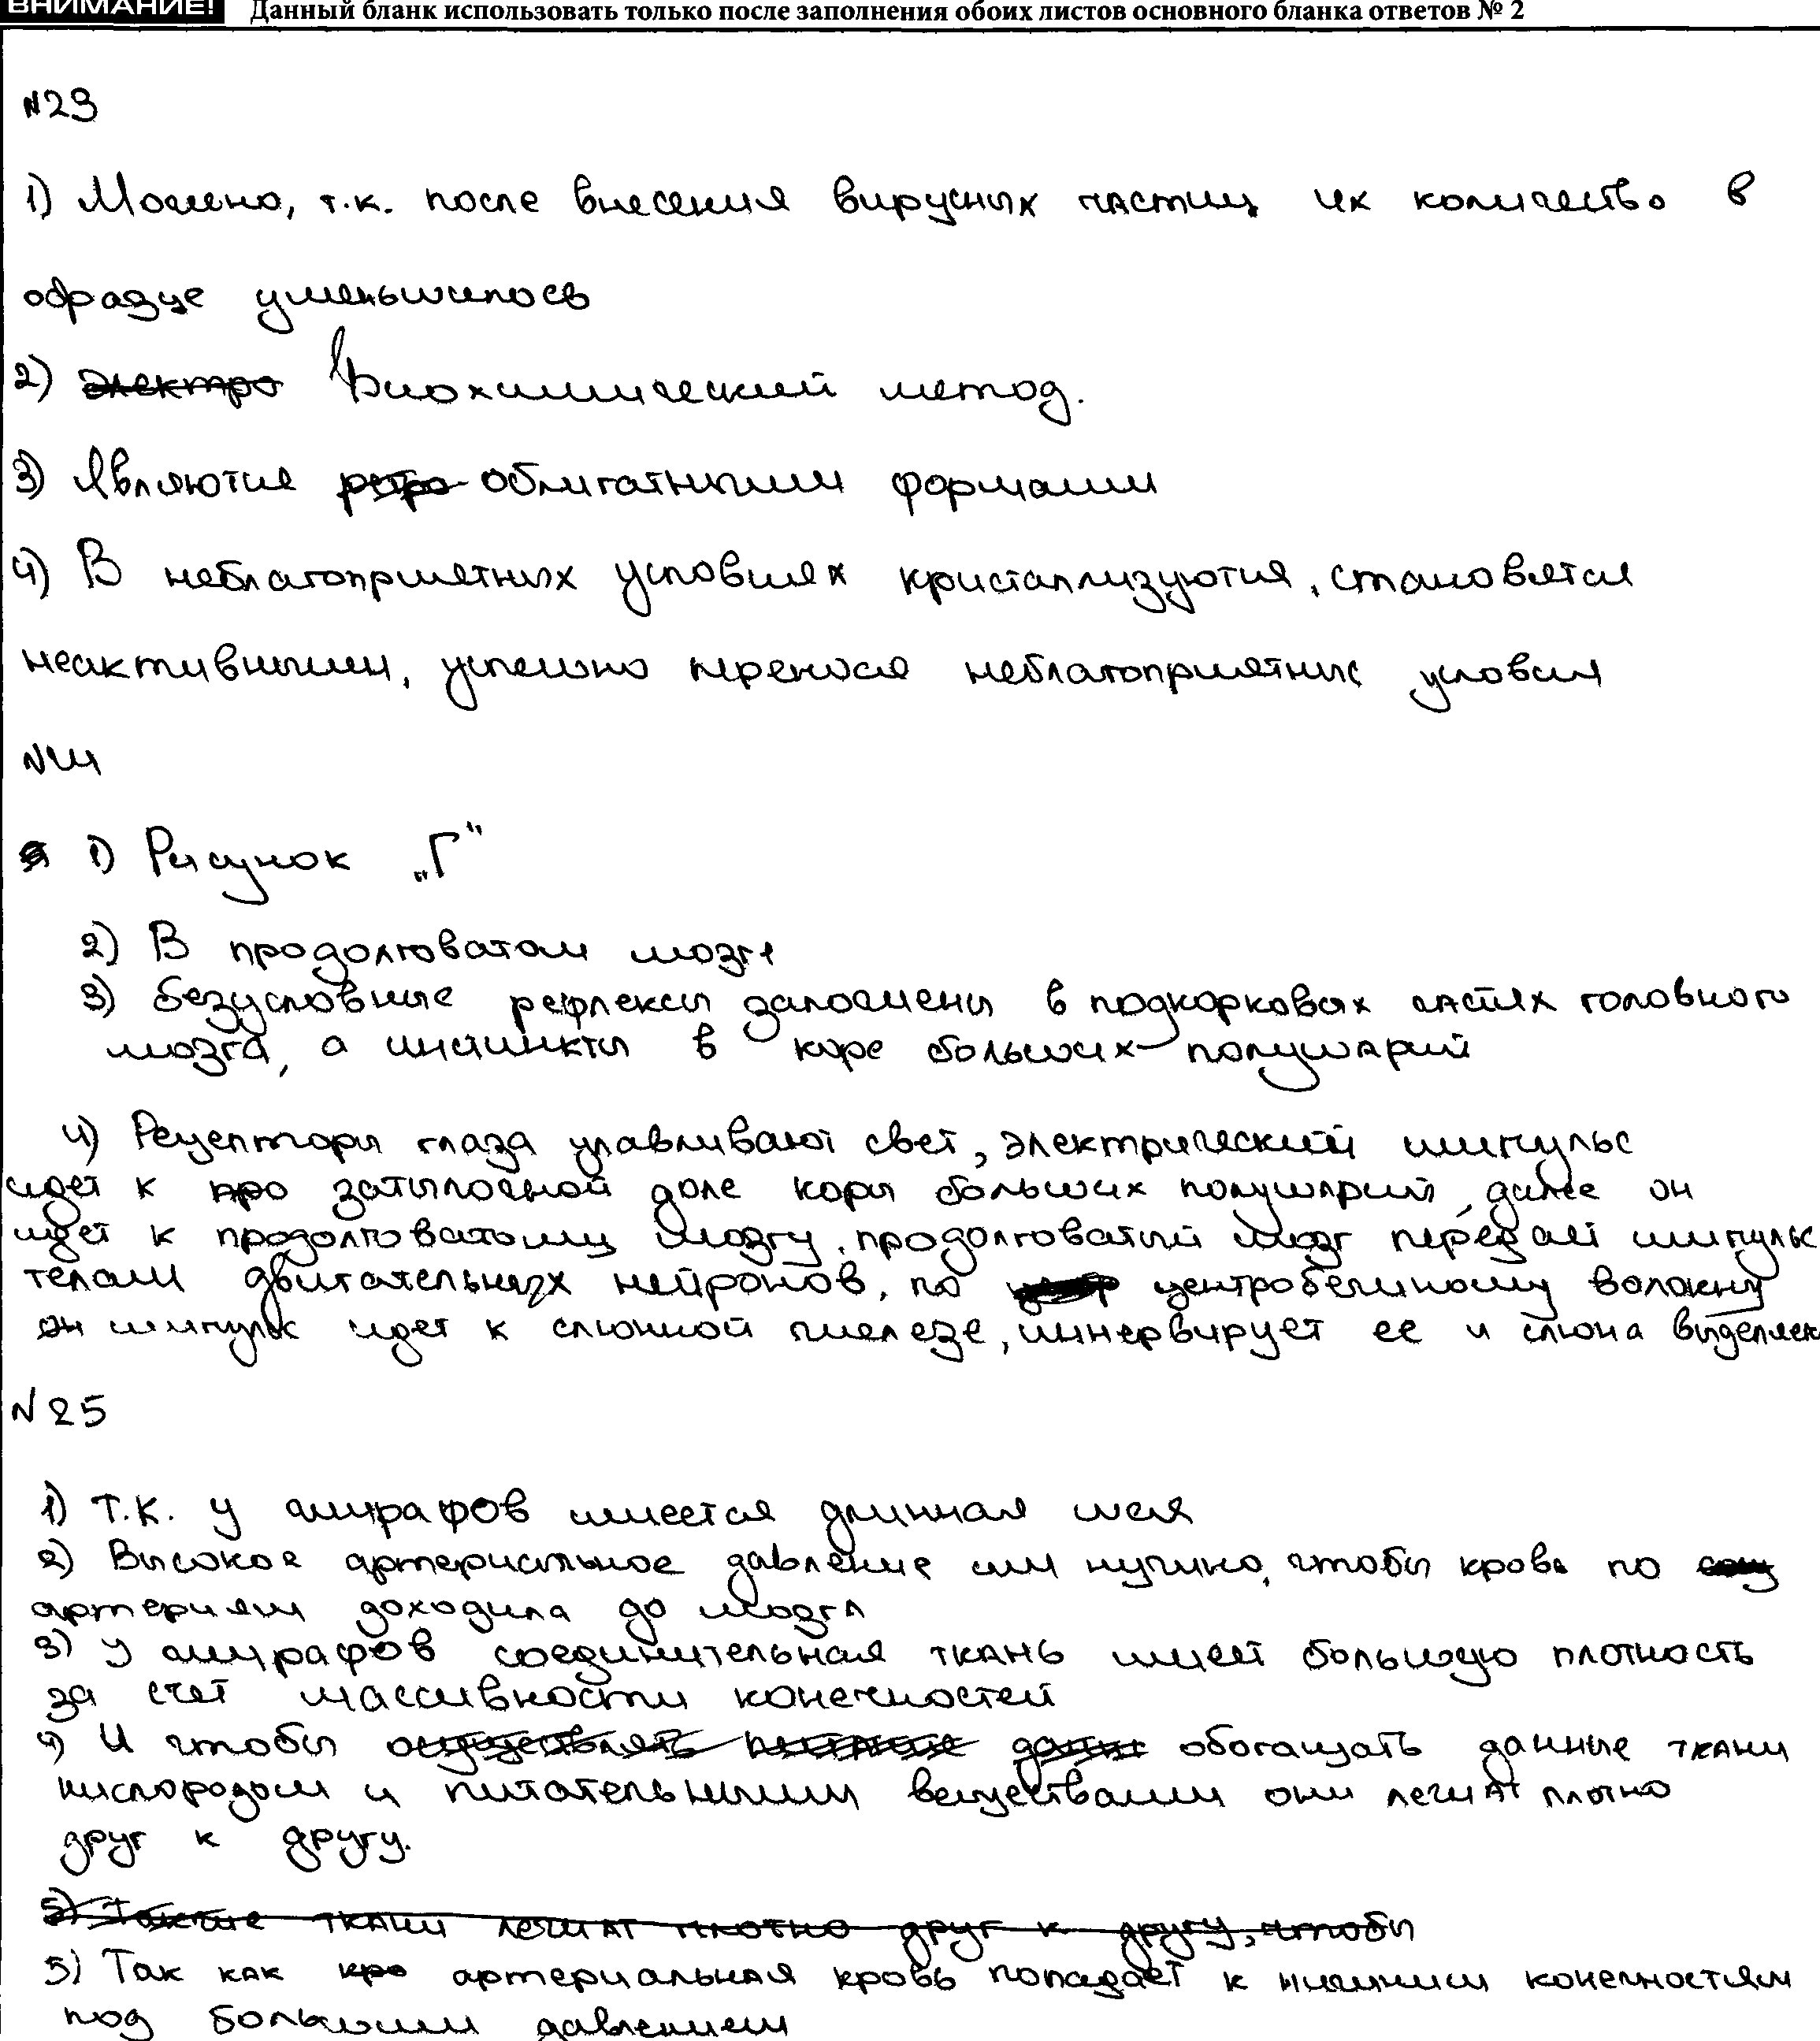 ВНИМАНИЕ! Данный бланк использовать только после заполнения обоих листов основного бланка ответов № 2
№23
1) Можно, т.к. после внесения вирусных частиц их количество в
образце уменьшилось
2) электро Биохимический метод.
3) Являются ретро облигатными формами
4) В неблагоприятных условиях кристаллизуются, становятся
неактивными, успешно перенося неблагоприятные условия
№24
1) Рисунок „Г"
2) В продолговатом мозге
3) Безусловные рефлексы заложены в подкорковых частях головного
мозга, а инстинкты в коре больших полушарий
4) Рецепторы глаза улавливают свет, электрический импульс
идет к про затылочной доле коры больших полушарий, далее он
идет к продолговатому мозгу, продолговатый мозг передает импульс
телам двигательных нейронов, по центробежному волокну
он импульс идет к слюнной железе, иннервирует ее и слюна выделяек
№25
1) Т.к. у жирафов имеется длинная шея
2) Высокое артериальное давление им нужно, чтобы кровь по
артериям доходила до мозга
3) У жирафов соединительная ткань имеет большую плотность
за счет массивности конечностей
4) И чтобы осуществлять питание данные обогащать данные ткани
кислородом и питательными веществами они лежат плотно
друг к другу.
5) Такие ткани лежат плотно друг к другу, чтобы
5) Так как кро артериальная кровь попадает к нижним конечностям
под большим давлением